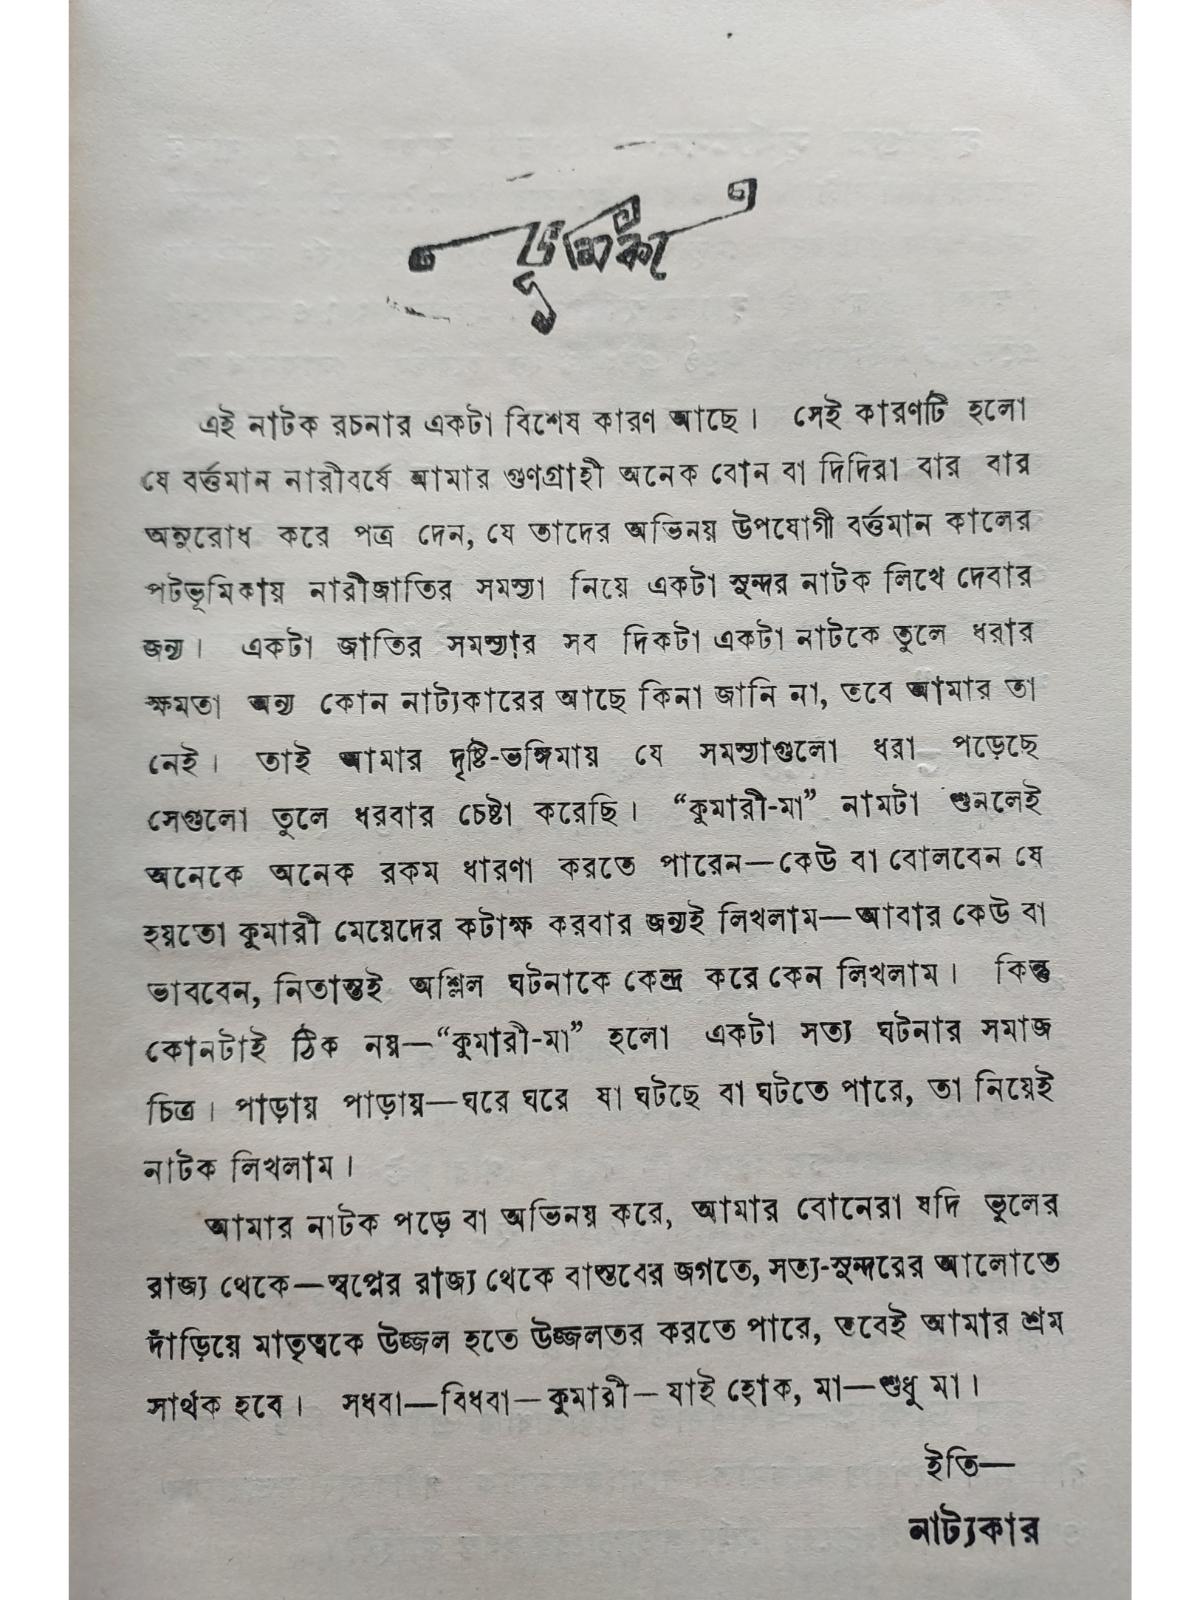 ভূমিকা
এই নাটক রচনার একটা বিশেষ কারণ আছে। সেই কারণটি হলো
যে বর্ত্তমান নারীবর্ষে আমার গুণগ্রাহী অনেক বোন বা দিদিরা বার বার
অনুরোধ করে পত্র দেন, যে তাদের অভিনয় উপযোগী বর্ত্তমান কালের
পটভূমিকায় নারীজাতির সমস্যা নিয়ে একটা সুন্দর নাটক লিখে দেবার
জন্য। একটা জাতির সমস্যার সব দিকটা একটা নাটকে তুলে ধরার
ক্ষমতা অন্য কোন নাট্যকারের আছে কিনা জানি না, তবে আমার তা
নেই। তাই আমার দৃষ্টি-ভঙ্গিমায় যে সমস্যাগুলো ধরা পড়েছে
সেগুলো তুলে ধরবার চেষ্টা করেছি। “কুমারী-মা” নামটা শুনলেই
অনেকে অনেক রকম ধারণা করতে পারেন—কেউ বা বোলবেন যে
হয়তো কুমারী মেয়েদের কটাক্ষ করবার জন্যই লিখলাম—আবার কেউ বা
ভাববেন, নিতান্তই অশ্লিল ঘটনাকে কেন্দ্র করে কেন লিখলাম। কিন্তু
কোনটাই ঠিক নয়—“কুমারী-মা” হলো একটা সত্য ঘটনার সমাজ
চিত্র। পাড়ায় পাড়ায়—ঘরে ঘরে যা ঘটছে বা ঘটতে পারে, তা নিয়েই
নাটক লিখলাম।
আমার নাটক পড়ে বা অভিনয় করে, আমার বোনেরা যদি ভুলের
রাজ্য থেকে—স্বপ্নের রাজ্য থেকে বাস্তবের জগতে, সত্য-সুন্দরের আলোতে
দাঁড়িয়ে মাতৃত্বকে উজ্জল হতে উজ্জলতর করতে পারে, তবেই আমার শ্রম
সার্থক হবে। সধবা—বিধবা—কুমারী—যাই হোক, মা—শুধু মা।
ইতি—
নাট্যকার